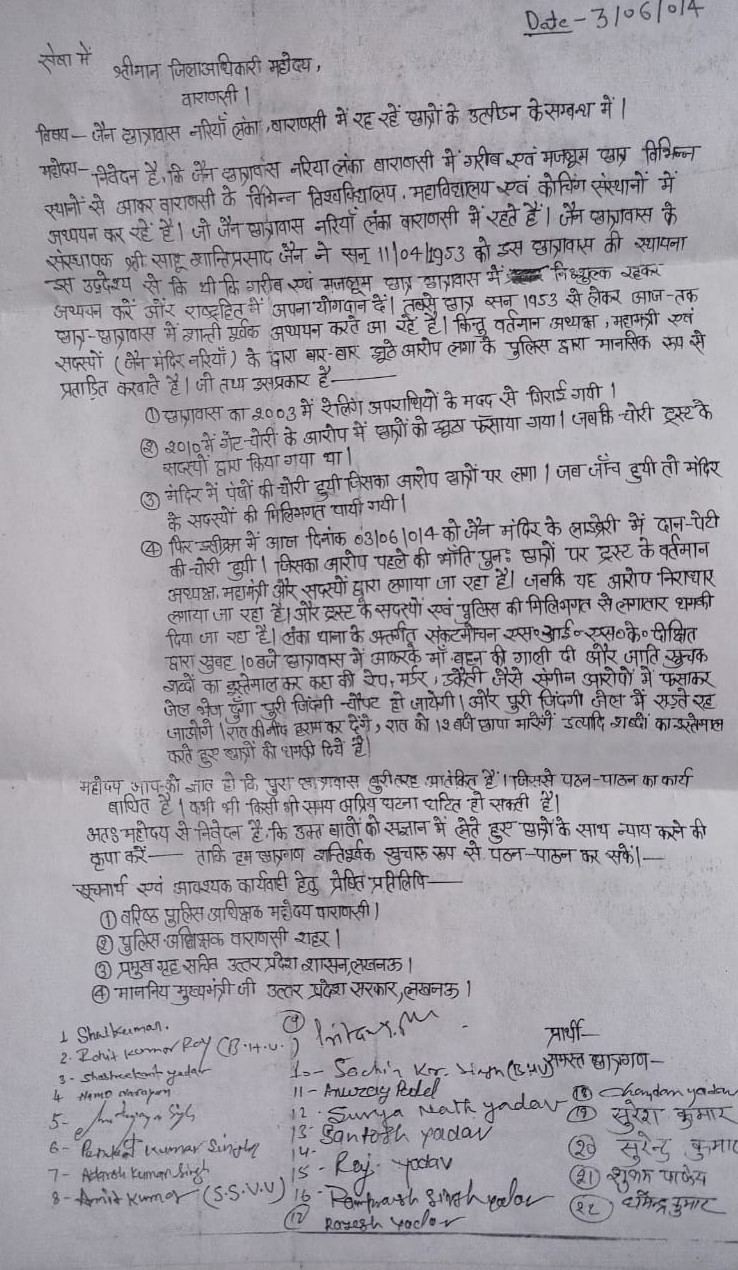 Date - 3/06/014
सेवा में
श्रीमान जिलाअधिकारी महोदय,
वाराणसी।
विषय – जैन छात्रावास नरियाँ लंका, वाराणसी में रह रहें छात्रों के उत्पीडन के सम्बन्ध में।
महोदय – निवेदन है, कि जैन छात्रावास नरिया लंका वाराणसी में गरीब एवं मजलूम छात्र विभिन्न
स्थानों से आकर वाराणसी के विभिन्न विश्वविद्यालय, महाविद्यालय एवं कोचिंग संस्थानों में
अध्ययन कर रहें है। जो जैन छात्रावास नरियाँ लंका वाराणसी में रहते हैं। जैन छात्रावास के
संस्थापक श्री साहू शान्तिप्रसाद जैन ने सन् 11/04/1953 को इस छात्रावास की स्थापना
इस उद्देश्य से कि थी कि गरीब एवं मजलूम छात्र छात्रावास में निःशुल्क रहकर
अध्ययन करें और राष्ट्रहित में अपना योगदान दें। तबसे छात्र सन् 1953 से लेकर आज-तक
छात्र-छात्रावास में शान्ती पूर्वक अध्ययन करते आ रहे है। किन्तु वर्तमान अध्यक्ष, महामंत्री एवं
सदस्यों (जैन मंदिर नरियाँ) के द्वारा बार-बार झूठे आरोप लगा के पुलिस द्वारा मानसिक रूप से
प्रताड़ित करवाते है। जो तथ्य इसप्रकार है –
① छात्रावास का 2003 में रेलिंग अपराधियों के मदद से गिराई गयी।
② 2010 में गेट-चोरी के आरोप में छात्रों को झूठा फँसाया गया। जबकि चोरी ट्रस्ट के
सदस्यों द्वारा किया गया था।
③ मंदिर में पंखों की चोरी हुयी जिसका आरोप छात्रों पर लगा। जब जाँच हुयी तो मंदिर
के सदस्यों की मिलिभगत पायी गयी।
④ फिर इसीक्रम में आज दिनांक 03/06/014 को जैन मंदिर के लाइब्रेरी में दान-पेटी
की चोरी हुयी। जिसका आरोप पहले की भाँति पुनः छात्रों पर ट्रस्ट के वर्तमान
अध्यक्ष, महामंत्री और सदस्यों द्वारा लगाया जा रहा है। जबकि यह आरोप निराधार
लगाया जा रहा है। और ट्रस्ट के सदस्यों एवं पुलिस की मिलिभगत से लगातार धमकी
दिया जा रहा है। लंका थाना के अंतर्गत संकटमोचन एस०आई०एस०के० दीक्षित
द्वारा सुबह 10 बजे छात्रावास में आकरके माँ बहन की गाली दी और जाति सूचक
शब्दों का इस्तेमाल कर कहा की रेप, मर्डर, डकैती जैसे संगीन आरोपों में फसाकर
जेल भेज दुँगा पुरी जिंदगी चौपट हो जायेगी। और पुरी जिंदगी जेल में सड़ते रह
जाओगे। रात की नींद हराम कर देंगे, रात को 12 बजे छापा मारेंगे इत्यादि शब्दों का इस्तेमाल
करते हुए छात्रों को धमकी दिये हैं।
महोदय आप-को ज्ञात हो कि पुरा छात्रावास बुरीतरह आतंकित हैं। जिससे पठन-पाठन का कार्य
बाधित है। कभी भी किसी भी समय अप्रिय घटना घटित हो सकती है।
अतः महोदय से निवेदन है, कि उक्त बातों को सज्ञान में लेते हुए छात्रों के साथ न्याय करने की
कृपा करें – ताकि हम छात्रगण शान्तिपूर्वक सुचारू रूप से पठन-पाठन कर सकें। –
सूचनार्थ एवं आवश्यक कार्यवाही हेतु प्रेषित प्रतिलिपि –
① वरिष्ठ पुलिस अधिक्षक महोदय वाराणसी।
② पुलिस अधिक्षक वाराणसी शहर।
③ प्रमुख गृह सचिव उत्तर प्रदेश शासन, लखनऊ।
④ माननिय मुख्यमंत्री जी उत्तर प्रदेश सरकार, लखनऊ।
प्रार्थी –
समस्त छात्रगण –
1 Shalkumar.
2. Rohit Kumar Ray (B.H.U.)
3 - Shashreekant yadav
4 Namo narayan
5-
6- Pankaj Kumar Singh
7- Adarsh Kumar Singh
8- Amit Kumar (S.S.V.V)
9
10- Sachin Kr. Singh (BHU)
11- Anurag Patel
12- Surya Nath yadav
13- Santosh yadav
14-
15- Raj yadav
16- Rampravesh Singh yadav
17 Rajesh yadav
18 Chandan yadav
19 सुरेश कुमार
20 सुरेन्द्र कुमार
21 शुभम पाण्डेय
22 धर्मेन्द्र कुमार